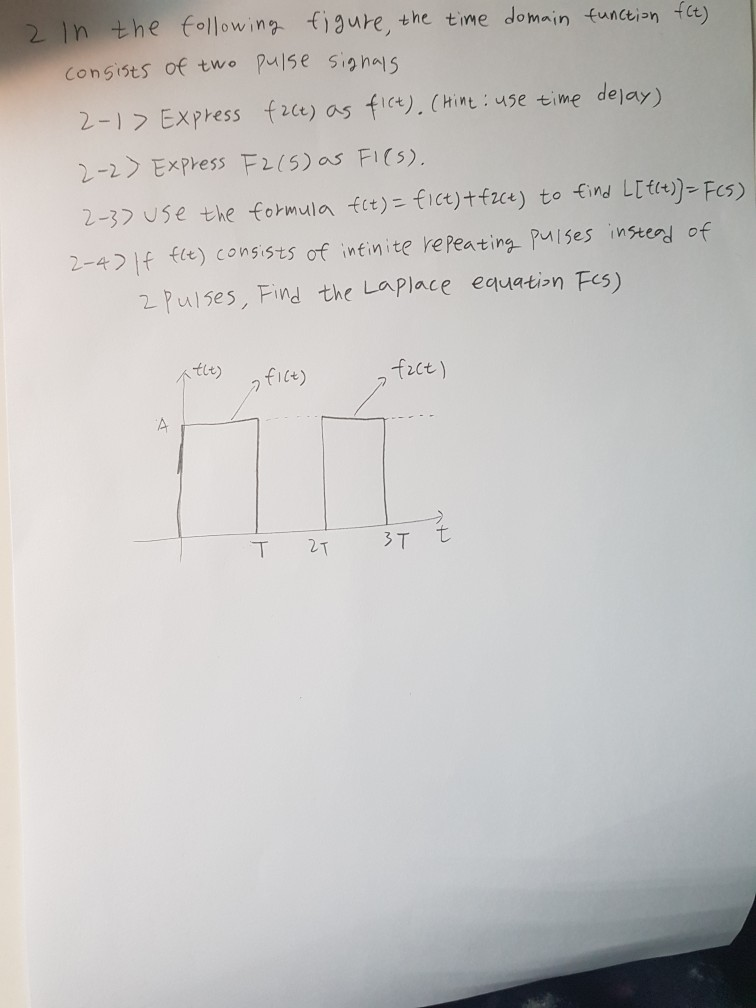 2 In the following figure, the time domain function f(t)
consists of two pulse signals
2-1> Express f2(t) as f1(t). (Hint : use time delay)
2-2> Express F2(S) as F1(S).
2-3> Use the formula f(t) = f1(t)+f2(t) to find L[f(t)]=F(S)
2-4> If f(t) consists of infinite repeating pulses instead of
2 pulses, Find the Laplace equation F(s)
f(t) f1(t) f2(t)
A
T 2T 3T t